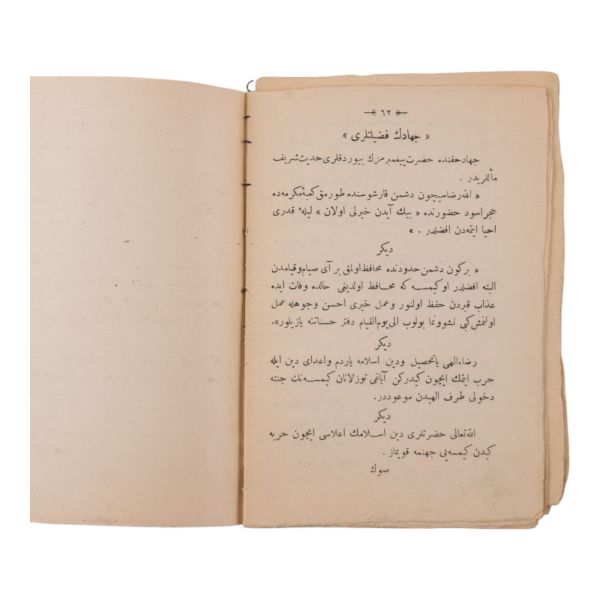 ٦٢
« جهادك فضیلتلری »
جهاد حقنده حضرت پیغمبرمزك بیوردقلری حدیث شریف
مأللریدر .
« الله رضاسیچون دشمن قارشوسنده طورمق كعبهٔ مكرمه‌ده
حجر اسود حضورنده « بیك آیدن خیرلی اولان » لیلهٔ قدری
احیا ایتمه‌دن افضلدر . »
دیكر
« بركون دشمن حدودنده محافظ اولمق بر آی صیام و قیامدن
البته افضلدر او كیمسه كه محافظ اولدیغی حالده وفات ایده
عذاب قبردن حفظ اولنور و عمل خیری احسن وجوهله عمل
اولنمش كبی نشوونما بولوب الی یوم القیام دفتر حسناتنه یازیلور».
دیكر
رضاء الهی یا تحصیل و دین اسلامه یاردم و اعدای دین ایله
حرب ایتمك ایچون كیدركن آیاغی توزلانان كیمسه‌نك جنته
دخولی طرف الهیدن موعوددر.
دیكر
الله تعالی حضرتلری دین اسلامك اعلاسی ایچون حربه
كیدن كیمسه‌یی جهنمه قویماز .
صوك